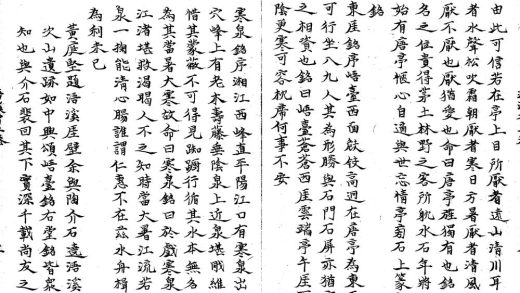 由此可信若在亭上目所厭者遠山清川耳
者水聲松吹霜朝厭者寒日方暑厭者清風
厭不厭也厭猶愛也命曰唐亭旌獨有也銘
名之位貴得茅土林野之客所躭水石年將
始有唐亭愜心自適與世忘情亭旁石上篆
銘
東崖銘序峿臺西面高迥在唐亭為東
可行坐八九人其為形勝與石門石屏亦猶
之相資也銘曰峿臺蒼蒼西崖雲端亭午崖
陰更寒可容枕席何事不安
寒泉銘序湘江西峰直平陽江口有寒泉出
穴峰上有老木壽藤垂陰泉上近泉堪戙維
惜其蒙蔽不可得見踟蹰行循其水本無名
為其當暑大寒故命曰寒泉銘曰於戲寒泉
江渚堪救渴暍人不之知時當大暑江流若
泉一掬能清心腸誰謂仁惠不在茲水舟楫
為利未已
黃庭堅題浯溪崖壁余與陶介石遶浯溪
次山遺跡如中興頌峿臺銘右堂銘皆衆
知也與介石裴回其下實深千載尚友之